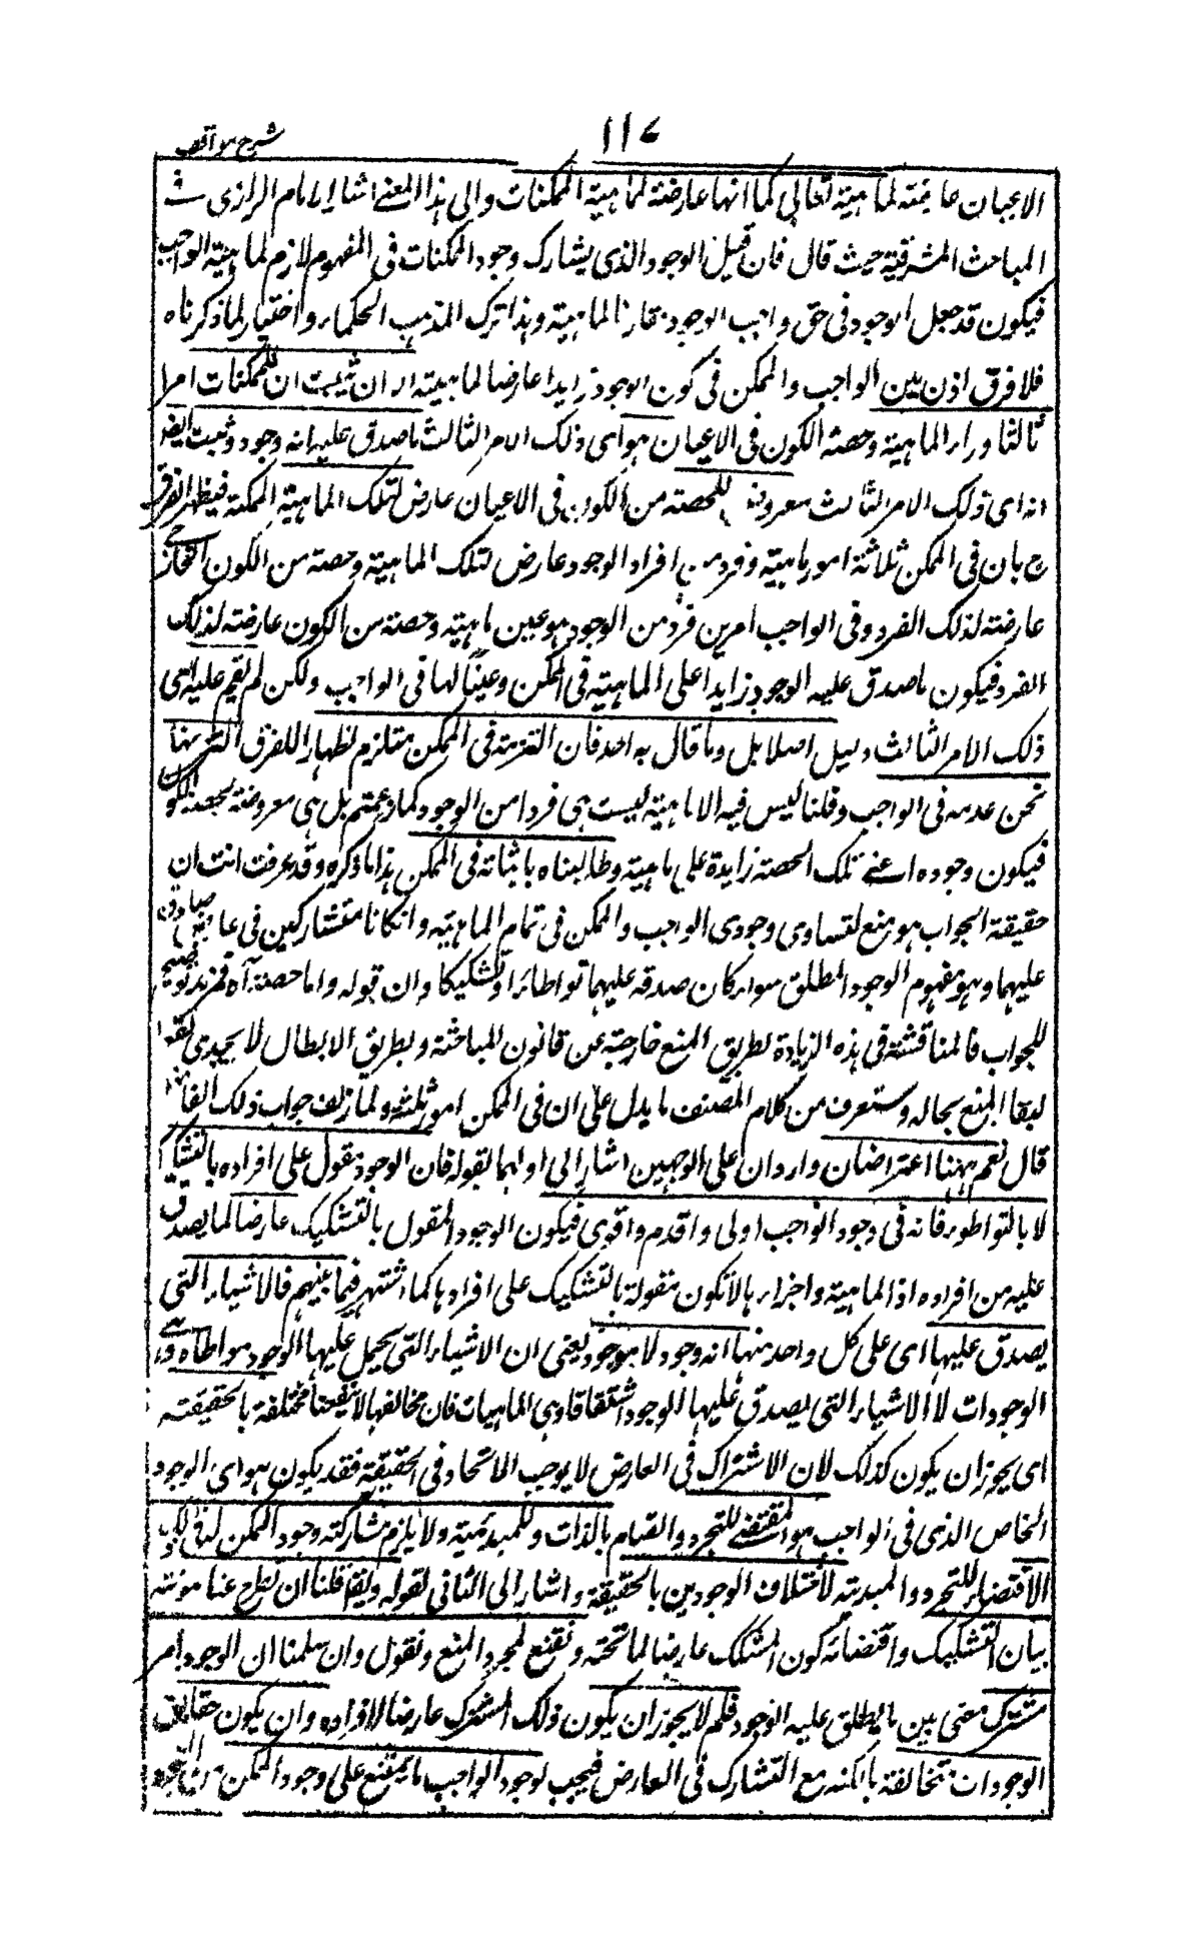 شرح مواقف
١١٧
الاعيان عارضة لماهيته تعالى كما انها عارضة لماهية الممكنات والى هذا المعنى اشار الامام الرازى فى
المباحث المشرقية حيث قال فان قيل الوجود الذى يشارك وجود الممكنات فى المفهوم لازم لماهية الواجب
فيكون قد جعل الوجود فى حق واجب الوجود مقارنا لماهية وهذا ترك المذهب الحكماء واختيار لما ذكرناه
فلا فرق اذن بين الواجب والممكن فى كون الوجود زايدا عارضا لماهيته الا ان تثبت ان للممكنات امرا
ثالثا وراء الماهية وحصة الكون فى الاعيان هو اى ذلك الامر الثالث ما صدق عليه انه وجود وتثبت ايض
انه اى ذلك الامر الثالث معروض للحصة من الكون فى الاعيان عارض لتلك الماهية الممكنة فيظهر الفرق
ح بان فى الممكن ثلاثة امور ماهية وفرد من افراد الوجود عارض لتلك الماهية وحصة من الكون الخارجى
عارضة لذلك الفرد وفى الواجب امرين فرد من الوجود هو عين ماهيته وحصة من الكون عارضة لذلك
الفرد فيكون ما صدق عليه الوجود زايدا على الماهية فى الممكن وعينا لها فى الواجب ولكن لم يقم عليه اى
ذلك الامر الثالث دليل اصلا بل وما قال به احد فان التزمته فى الممكن ملتزم اظهارا للفرق التزمنا
نحن عدمه فى الواجب وقلنا ليس فيه الا ماهية ليست هى فردا من الوجود كما زعمتم بل هى معروضة لحصة الكون
فيكون وجوده اعنى تلك الحصة زايدة على ماهيته وطالبناه باثباته فى الممكن هذا ما ذكره وقد عرفت انت ان
حقيقة الجواب هو منع لتساوى وجودى الواجب والممكن فى تمام الماهية وان كانا متشاركين فى عارض صادق
عليهما وهو مفهوم الوجود المطلق سواء كان صدقه عليهما تواطئا او تشكيكا وان قوله واما حصة آه فمزيد توضيح
للجواب فالمناقشة فى هذه الزيادة بطريق المنع خارجة عن قانون المباحثة وبطريق الابطال لا يجدى نفعا
لبقاء المنع بحاله وستعرف من كلام المصنف ما يدل على ان فى الممكن امور ثلثة ولما زيف جواب ذلك الفاضل
قال نعم ههنا اعتراضان واردان على الوجهين اشار الى اولهما بقوله فان الوجود مقول على افراده بالتشكيك
لا بالتواطؤ فانه فى وجود الواجب اولى واقدم واقوى فيكون الوجود المقول بالتشكيك عارضا لما يصدق
عليه من افراده اذ الماهية واجزاءها لا تكون مقولة بالتشكيك على افرادها كما اشتهر فيما بينهم فالاشياء التى
يصدق عليها اى على كل واحد منها انه وجود لا موجود يعنى ان الاشياء التى يحمل عليها الوجود مواطاة وهى
الوجودات لا الاشياء التى يصدق عليها الوجود اشتقاقا وهى الماهيات فان تخالفها لا ينفعنا مختلفة بالحقيقة
اى يجوز ان يكون كذلك لان الاشتراك فى العارض لا يوجب الاتحاد فى الحقيقة فقد يكون هو اى الوجود
الخاص الذى فى الواجب هو المقتضى للتجرد والقيام بالذات وللمبدئية ولا يلزم مشاركته وجود الممكن له فى ذلك
الاقتضاء للتجرد والمبدئية لاختلاف الوجودين بالحقيقة واشار الى الثانى بقوله وايضا فلنا ان نطرح عنا مؤنة
بيان التشكيك واقتضائه كون المشكك عارضا لما تحته ونقنع لمجرد المنع ونقول وان سلمنا ان الوجود امر
مشترك معنى بين ما يطلق عليه الوجود فلم لا يجوز ان يكون ذلك المشترك عارضا لافراده وان يكون حقايق
الوجودات متخالفة بالكنه مع التشارك فى العارض فيجب لوجود الواجب ما يمتنع على وجود الممكن من التجرد